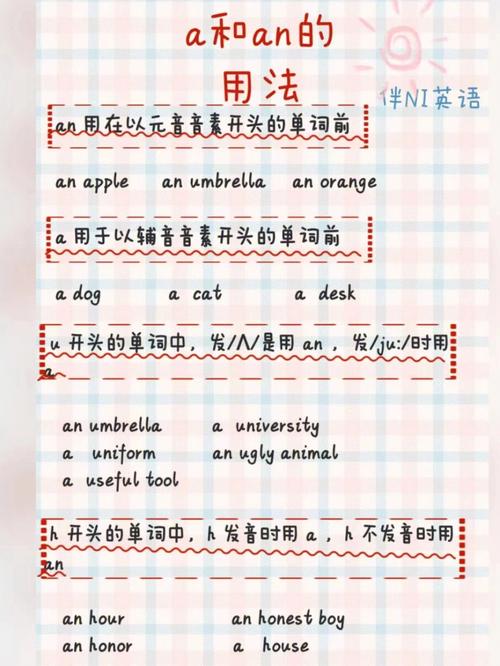 a和an的
用法
伴NI英语
an 用在以元音音素开头的单词前
an apple an umbrella an orange
a 用于以辅音音素开头的单词前
a dog a cat a desk
u 开头的单词中，发/Λ/是用 an ，发/ju:/时用
a
an umbrella a university
a uniform an ugly animal
a useful tool
h 开头的单词中，h 发音时用 a ，h 不发音时用
an
an hour an honest boy
an honor a house